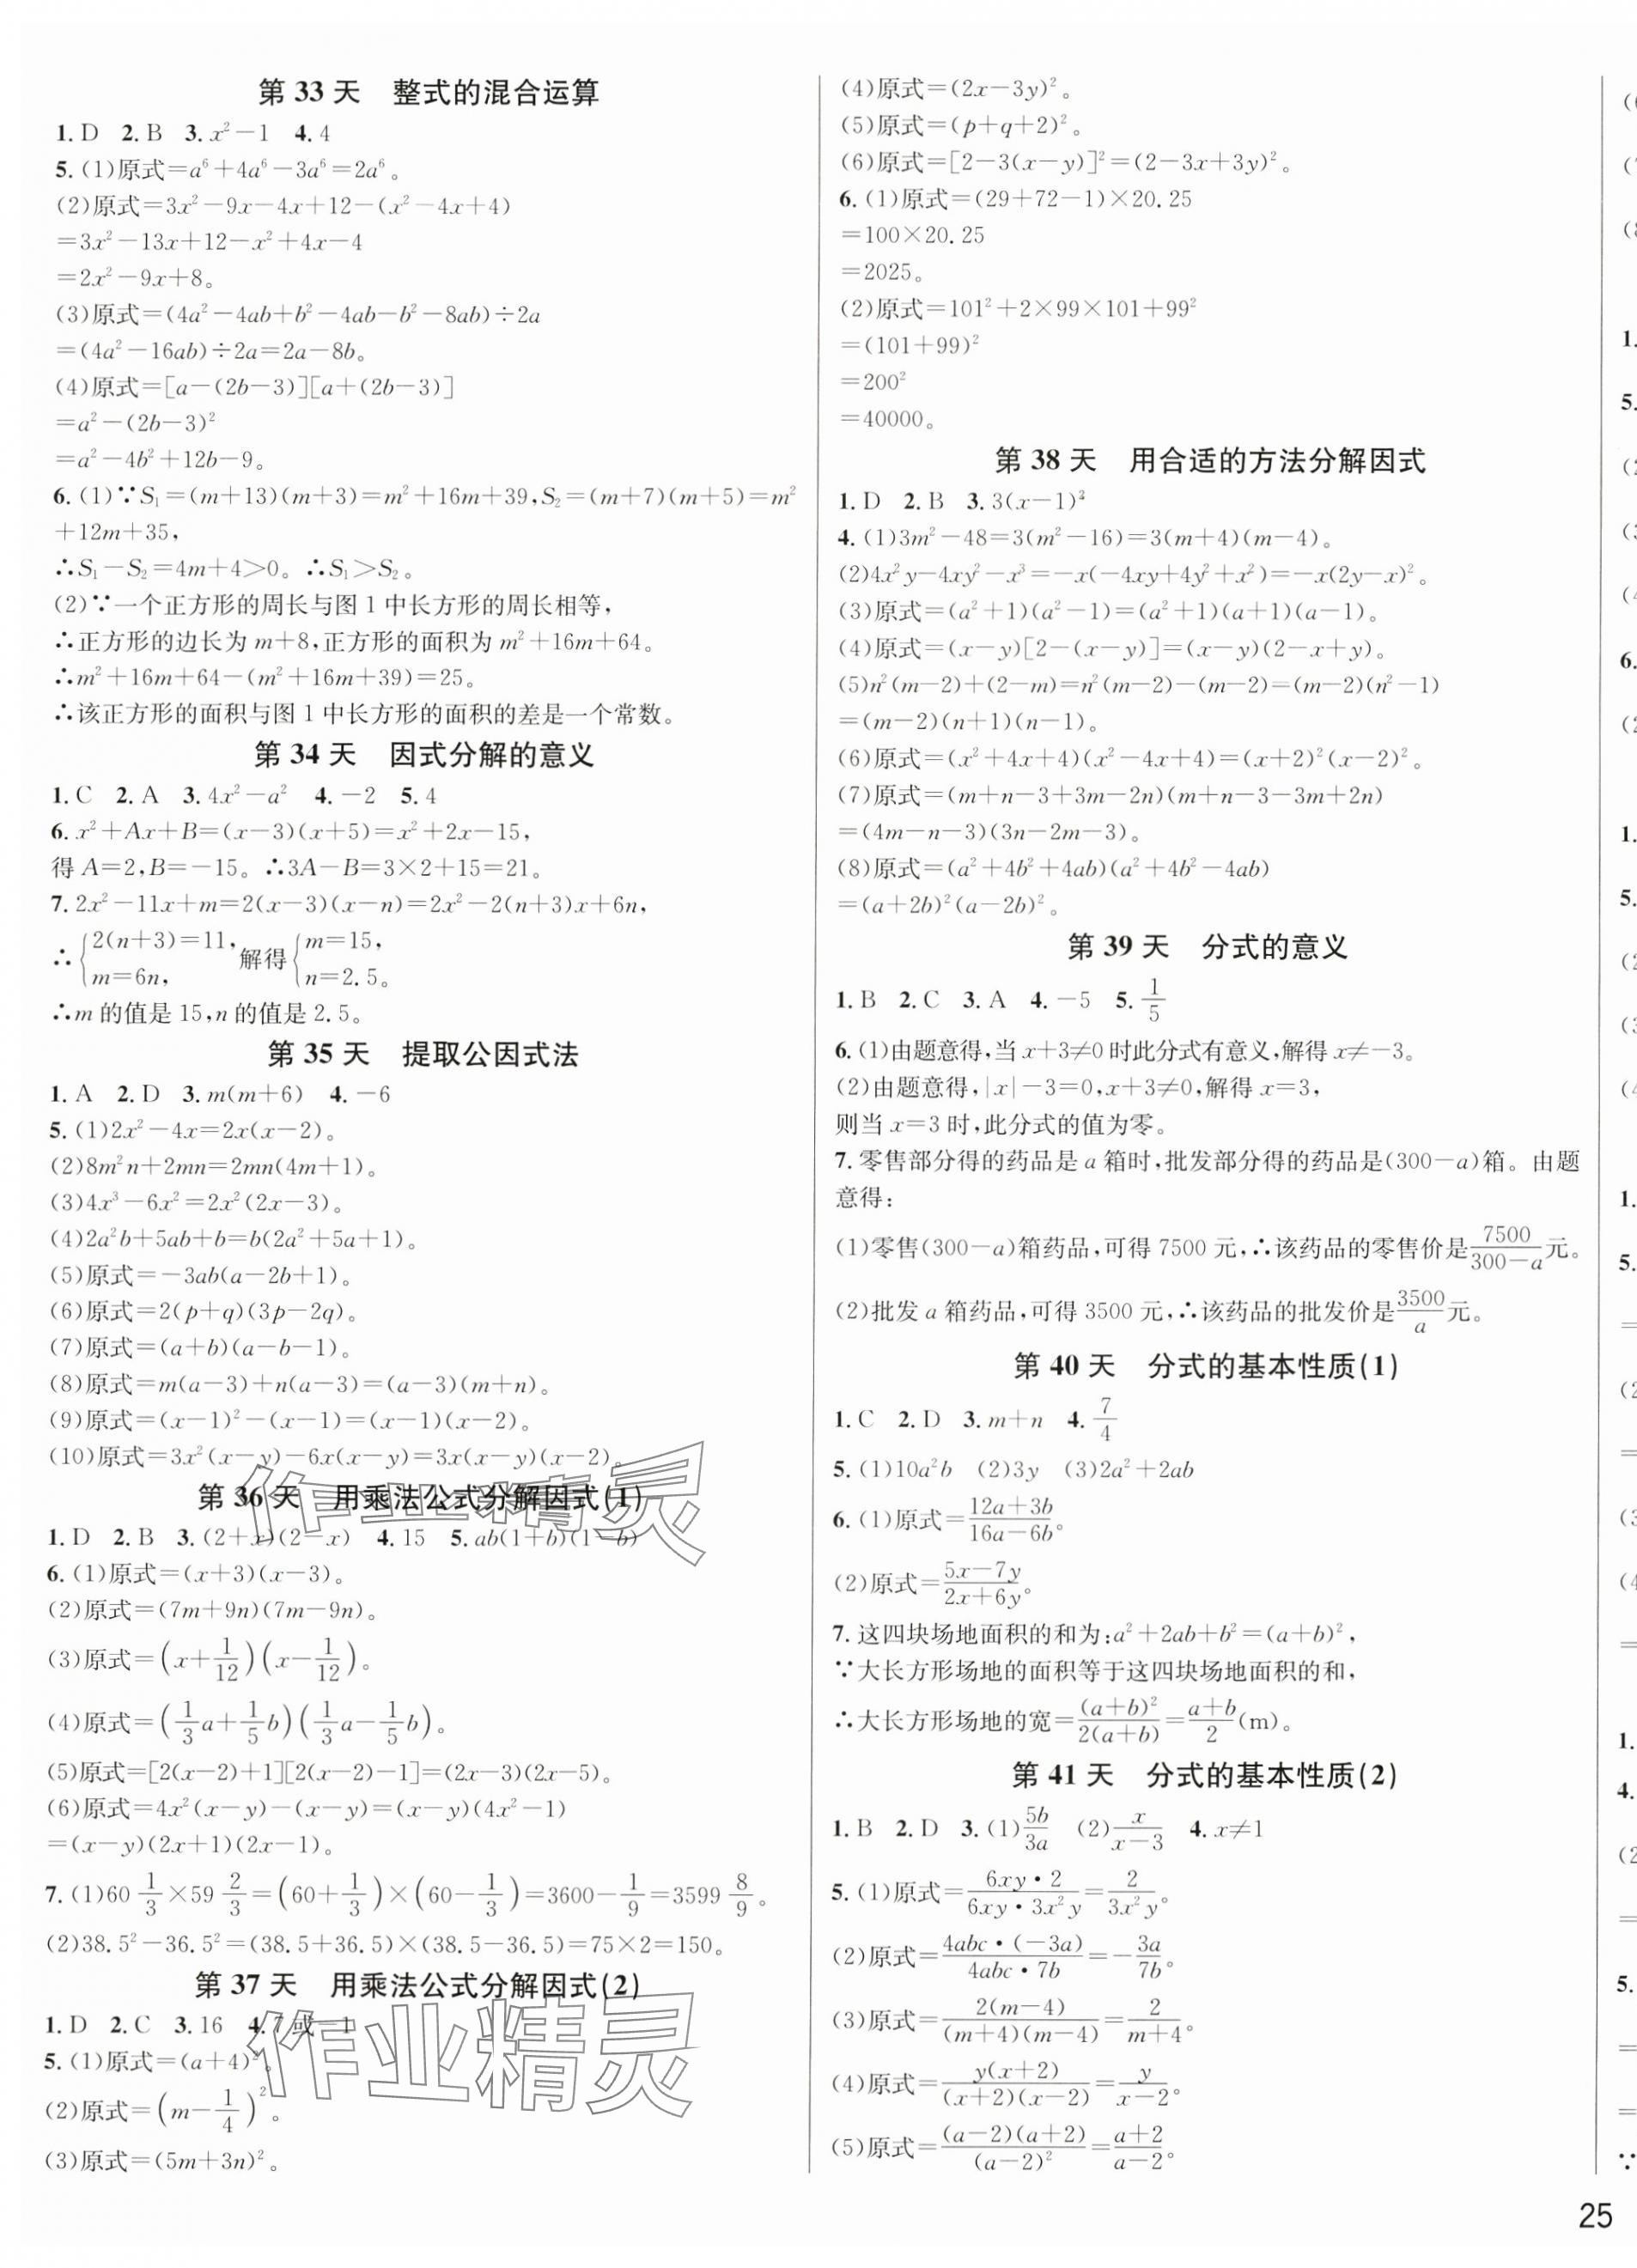 第 33 天　整式的混合运算
1. D　2. B　3. x²－1　4. 4
5. (1)原式＝a⁶＋4a⁶－3a⁶＝2a⁶。
(2)原式＝3x²－9x－4x＋12－(x²－4x＋4)
＝3x²－13x＋12－x²＋4x－4
＝2x²－9x＋8。
(3)原式＝(4a²－4ab＋b²－4ab－b²－8ab)÷2a
＝(4a²－16ab)÷2a＝2a－8b。
(4)原式＝[a－(2b－3)][a＋(2b－3)]
＝a²－(2b－3)²
＝a²－4b²＋12b－9。
6. (1)∵S₁＝(m＋13)(m＋3)＝m²＋16m＋39,S₂＝(m＋7)(m＋5)＝m²
＋12m＋35,
∴S₁－S₂＝4m＋4＞0。∴S₁＞S₂。
(2)∵一个正方形的周长与图 1 中长方形的周长相等,
∴正方形的边长为 m＋8,正方形的面积为 m²＋16m＋64。
∴m²＋16m＋64－(m²＋16m＋39)＝25。
∴该正方形的面积与图 1 中长方形的面积的差是一个常数。
第 34 天　因式分解的意义
1. C　2. A　3. 4x²－a²　4. －2　5. 4
6. x²＋Ax＋B＝(x－3)(x＋5)＝x²＋2x－15,
得 A＝2,B＝－15。∴3A－B＝3×2＋15＝21。
7. 2x²－11x＋m＝2(x－3)(x－n)＝2x²－2(n＋3)x＋6n,
∴{2(n＋3)＝11, m＝6n, 解得{m＝15, n＝2.5。
∴m 的值是 15,n 的值是 2.5。
第 35 天　提取公因式法
1. A　2. D　3. m(m＋6)　4. －6
5. (1)2x²－4x＝2x(x－2)。
(2)8m²n＋2mn＝2mn(4m＋1)。
(3)4x³－6x²＝2x²(2x－3)。
(4)2a²b＋5ab＋b＝b(2a²＋5a＋1)。
(5)原式＝－3ab(a－2b＋1)。
(6)原式＝2(p＋q)(3p－2q)。
(7)原式＝(a＋b)(a－b－1)。
(8)原式＝m(a－3)＋n(a－3)＝(a－3)(m＋n)。
(9)原式＝(x－1)²－(x－1)＝(x－1)(x－2)。
(10)原式＝3x²(x－y)－6x(x－y)＝3x(x－y)(x－2)。
第 36 天　用乘法公式分解因式(1)
作业精灵
1. D　2. B　3. (2＋x)(2－x)　4. 15　5. ab(1＋b)(1－b)
6. (1)原式＝(x＋3)(x－3)。
(2)原式＝(7m＋9n)(7m－9n)。
(3)原式＝(x＋1/12)(x－1/12)。
(4)原式＝(1/3 a＋1/5 b)(1/3 a－1/5 b)。
(5)原式＝[2(x－2)＋1][2(x－2)－1]＝(2x－3)(2x－5)。
(6)原式＝4x²(x－y)－(x－y)＝(x－y)(4x²－1)
＝(x－y)(2x＋1)(2x－1)。
7. (1)60 1/3×59 2/3＝(60＋1/3)×(60－1/3)＝3600－1/9＝3599 8/9。
(2)38.5²－36.5²＝(38.5＋36.5)×(38.5－36.5)＝75×2＝150。
第 37 天　用乘法公式分解因式(2)
1. D　2. C　3. 16　4. 7 或－1
作业精灵
5. (1)原式＝(a＋4)²。
(2)原式＝(m－1/4)²。
(3)原式＝(5m＋3n)²。
(4)原式＝(2x－3y)²。
(5)原式＝(p＋q＋2)²。
(6)原式＝[2－3(x－y)]²＝(2－3x＋3y)²。
6. (1)原式＝(29＋72－1)×20.25
＝100×20.25
＝2025。
(2)原式＝101²＋2×99×101＋99²
＝(101＋99)²
＝200²
＝40000。
第 38 天　用合适的方法分解因式
1. D　2. B　3. 3(x－1)²
4. (1)3m²－48＝3(m²－16)＝3(m＋4)(m－4)。
(2)4x²y－4xy²－x³＝－x(－4xy＋4y²＋x²)＝－x(2y－x)²。
(3)原式＝(a²＋1)(a²－1)＝(a²＋1)(a＋1)(a－1)。
(4)原式＝(x－y)[2－(x－y)]＝(x－y)(2－x＋y)。
(5)n²(m－2)＋(2－m)＝n²(m－2)－(m－2)＝(m－2)(n²－1)
＝(m－2)(n＋1)(n－1)。
(6)原式＝(x²＋4x＋4)(x²－4x＋4)＝(x＋2)²(x－2)²。
(7)原式＝(m＋n－3＋3m－2n)(m＋n－3－3m＋2n)
＝(4m－n－3)(3n－2m－3)。
(8)原式＝(a²＋4b²＋4ab)(a²＋4b²－4ab)
＝(a＋2b)²(a－2b)²。
第 39 天　分式的意义
1. B　2. C　3. A　4. －5　5. 1/5
6. (1)由题意得,当 x＋3≠0 时此分式有意义,解得 x≠－3。
(2)由题意得,|x|－3＝0,x＋3≠0,解得 x＝3,
则当 x＝3 时,此分式的值为零。
7. 零售部分得的药品是 a 箱时,批发部分得的药品是(300－a)箱。由题
意得:
(1)零售(300－a)箱药品,可得 7500 元,∴该药品的零售价是7500/(300－a)元。
(2)批发 a 箱药品,可得 3500 元,∴该药品的批发价是3500/a元。
第 40 天　分式的基本性质(1)
1. C　2. D　3. m＋n　4. 7/4
5. (1)10a²b　(2)3y　(3)2a²＋2ab
6. (1)原式＝(12a＋3b)/(16a－6b)。
(2)原式＝(5x－7y)/(2x＋6y)。
7. 这四块场地面积的和为:a²＋2ab＋b²＝(a＋b)²,
∵大长方形场地的面积等于这四块场地面积的和,
∴大长方形场地的宽＝(a＋b)²/2(a＋b)＝(a＋b)/2(m)。
第 41 天　分式的基本性质(2)
1. B　2. D　3. (1)5b/3a　(2)x/(x－3)　4. x≠1
5. (1)原式＝(6xy·2)/(6xy·3x²y)＝2/(3x²y)。
(2)原式＝(4abc·(－3a))/(4abc·7b)＝－3a/7b。
(3)原式＝2(m－4)/((m＋4)(m－4))＝2/(m＋4)。
(4)原式＝y(x＋2)/((x＋2)(x－2))＝y/(x－2)。
(5)原式＝(a－2)(a＋2)/(a－2)²＝(a＋2)/(a－2)。
25